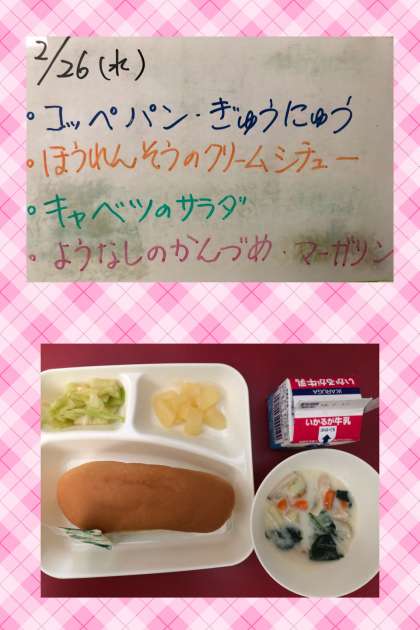 2/26(水)
・コッペパン・ぎゅうにゅう
・ほうれんそうのクリームシチュー
・キャベツのサラダ
・ようなしのかんづめ・マーガリン
いかるが牛乳
IKARUGA
いかるが牛乳